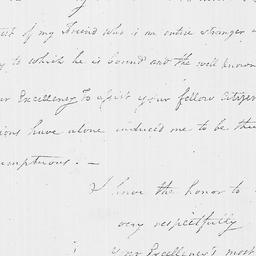 est of my Friend who is an entire stranger
to which he is bound and the well known
Excellency To assist your fellow Citizen
ions have alone induced me to be thu
umptuous. —
I have the honor to
very respectfully
Your Excellency's most